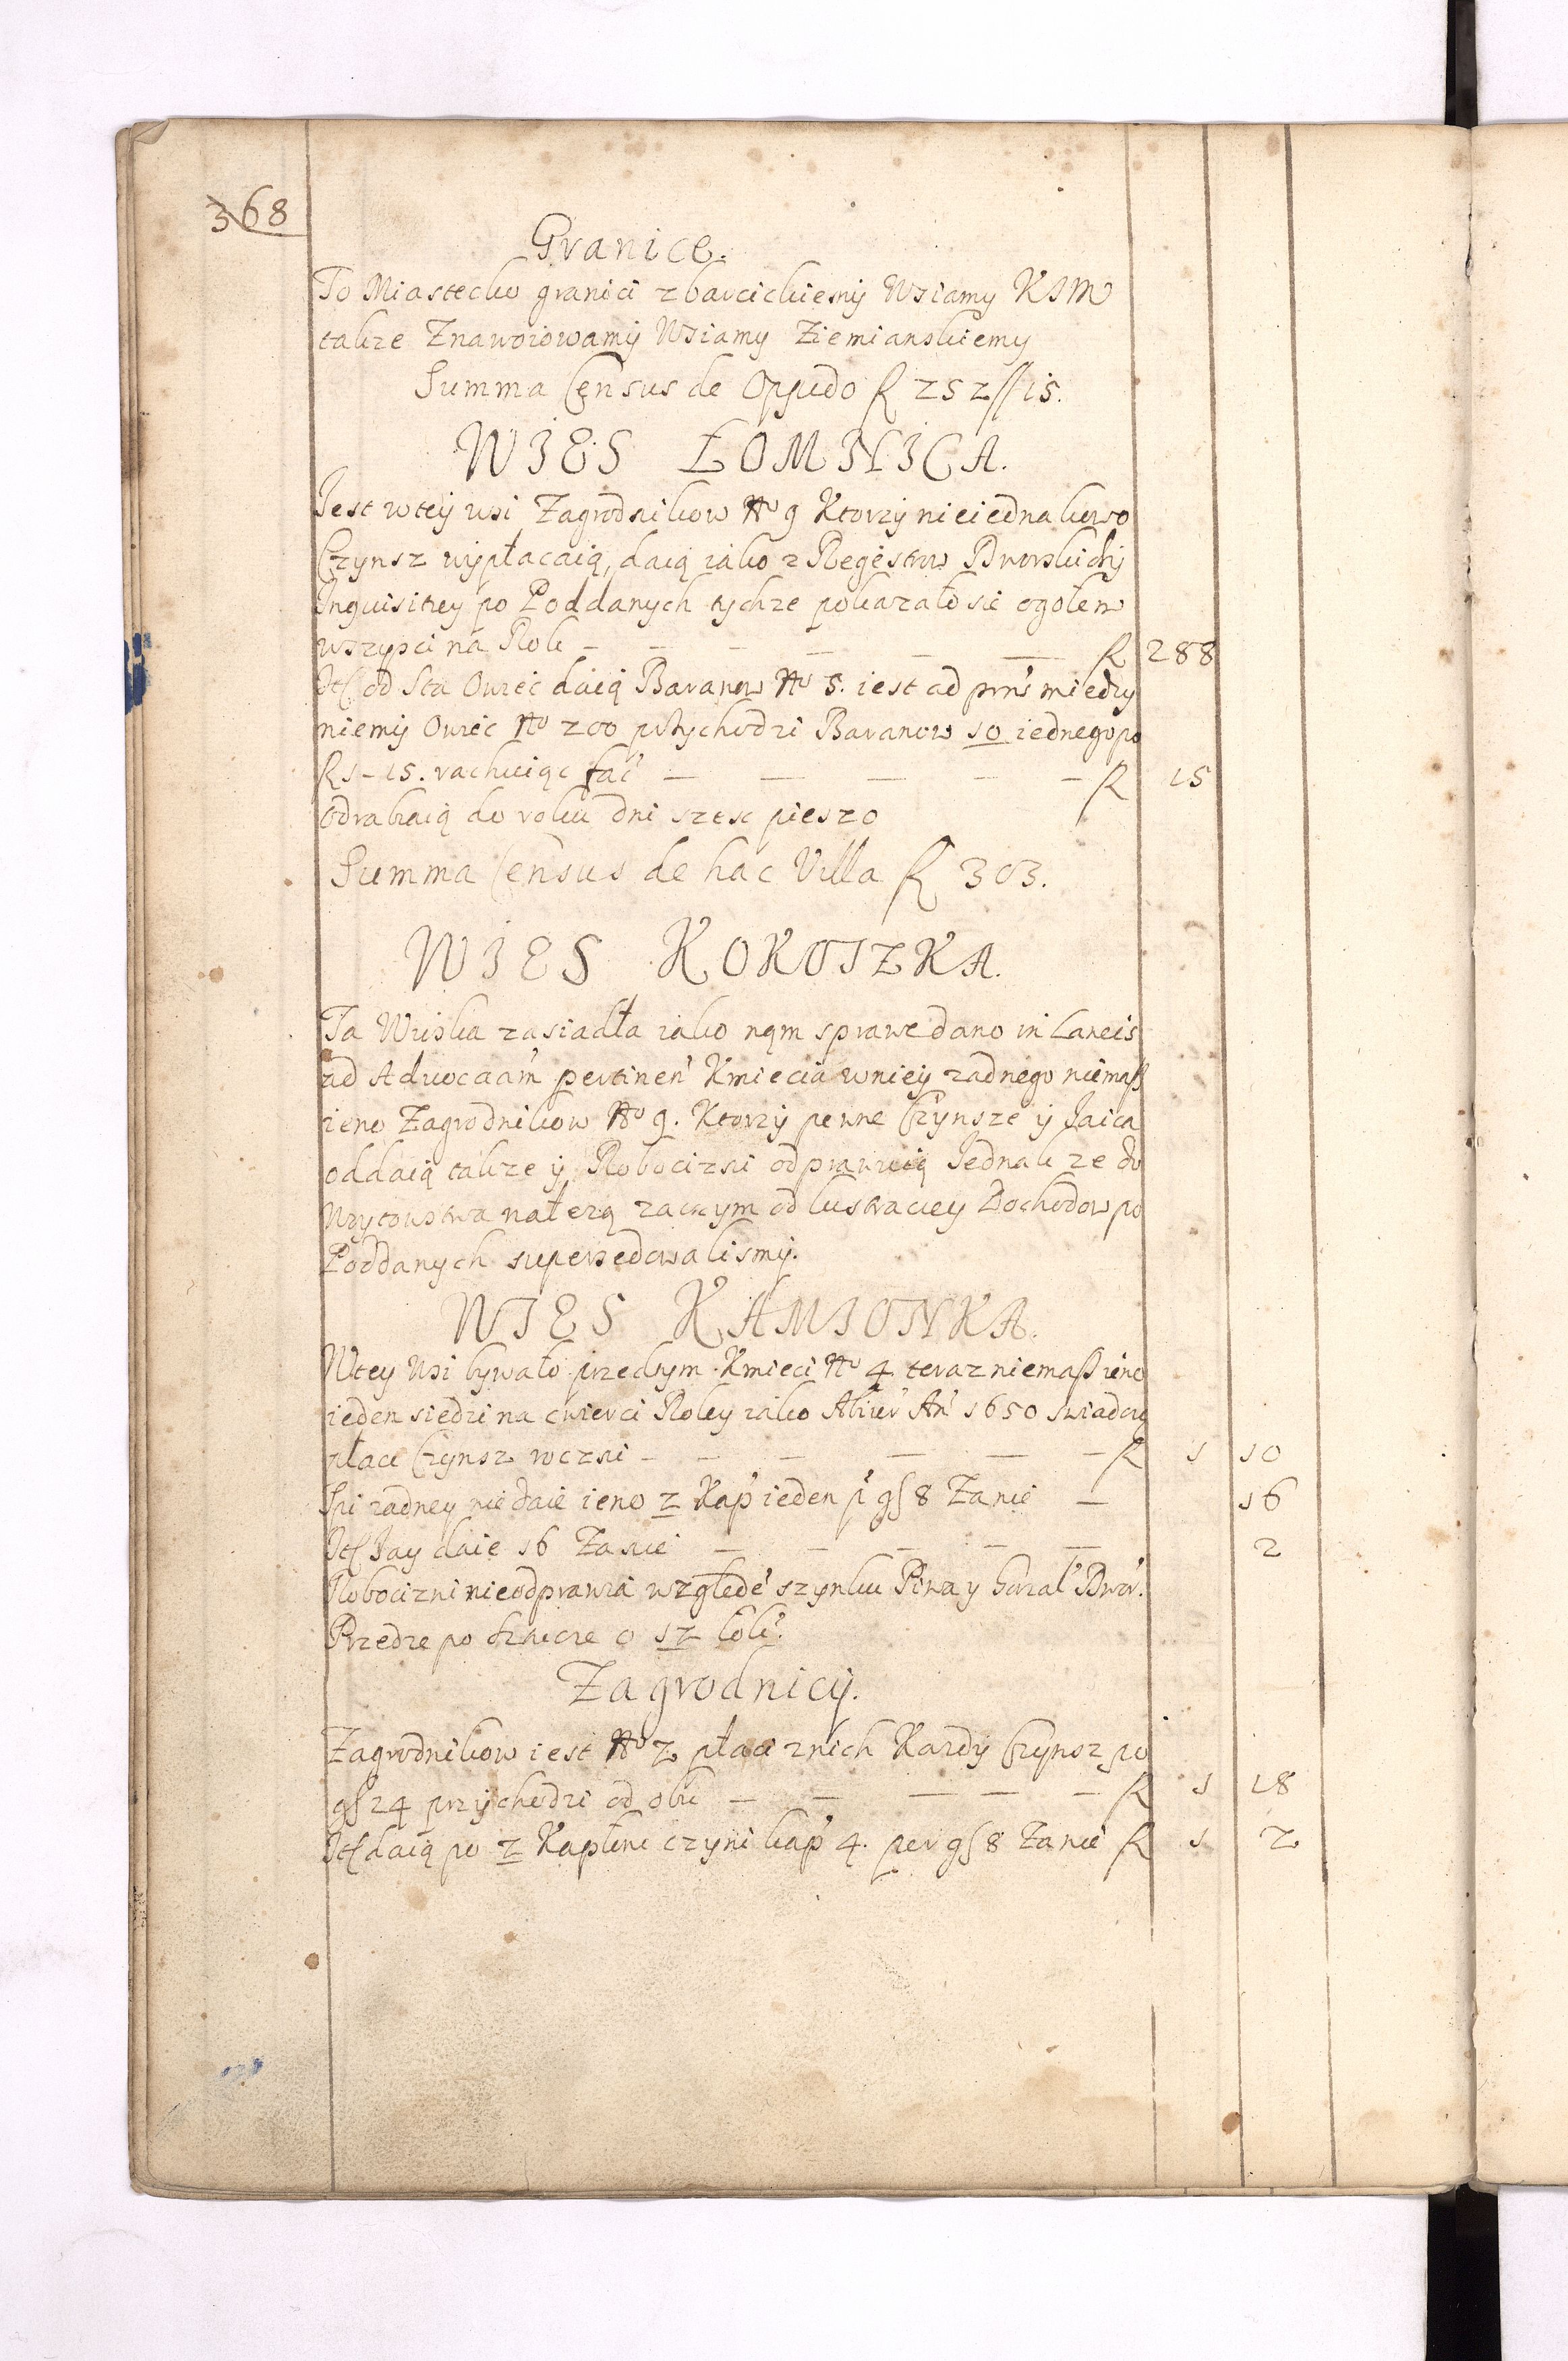 368
Granice.
To Miasteczko granici z barcickiemij Wsiamy KJM
także Znawoiowamij Wsiamy Ziemianskiemy
Summa Census de Oppido R 252//15.
WIES ŁOMNICA.
Jest wteij wsi Zagrodnikow No 9 Ktorzij nieiednakowo
Czynsz wijpłacaią, daią iako z Regestrow Dworskich ij
Inquisitiey po Poddanych tychze pokazało sie ogołem
wszyści na Rok — — — — — R 288
It od Sta Owiec daią Baranow No 5. iest ad pnś miedzy
niemij Owiec No 200 przychodzi Baranow 10 iednego po
R 1-15. rachuiąc fać — — — — — R 15
Odrabiaią do roku dni szesc pieszo
Summa Census de hac Villa R 303.
WIES KOKOSZKA.
Ta Wioska zasiadła iako nąm sprawę dano in Laneis
ad Advocaam pertinen Kmiecia wnieij zadnego niemaß
ieno Zagrodnikow No 9. Ktorzij pewne Czynsze ij Jaica
oddaią także ij Robocizni odprawuią Jednak ze do
Woytowstwa nałezą zaczym od lustraciey Dochodow po
Poddanych supersedowalismij.
WIES KAMIONKA.
Wtey Wsi bywało przedtym Kmieci No 4 teraz niemaß ieno
ieden siedzi na cwierci Roley iako An 1650 swiadczy
płaci Czynsz roczni — — — — — — R 1 10
Spi zadney nie daie ieno 2 Kap ieden p gs 8 Zanie — 16
It Jay daie 16 Zanie — — — — — 2
Robocizni nieodprawia wzgłedē szynku Piwa y Gorzał Dwor.
Przedze po sztucze o 12 łok.
Zagrodnicij.
Zagrodnikow iest No 2 płaci znich Kazdy Czynsz po
gs 24 przijchodzi od obu — — — — — R 1 18
It daią po 2 Kapłoni czyni kap 4. per gs 8 Zanie R 1 2